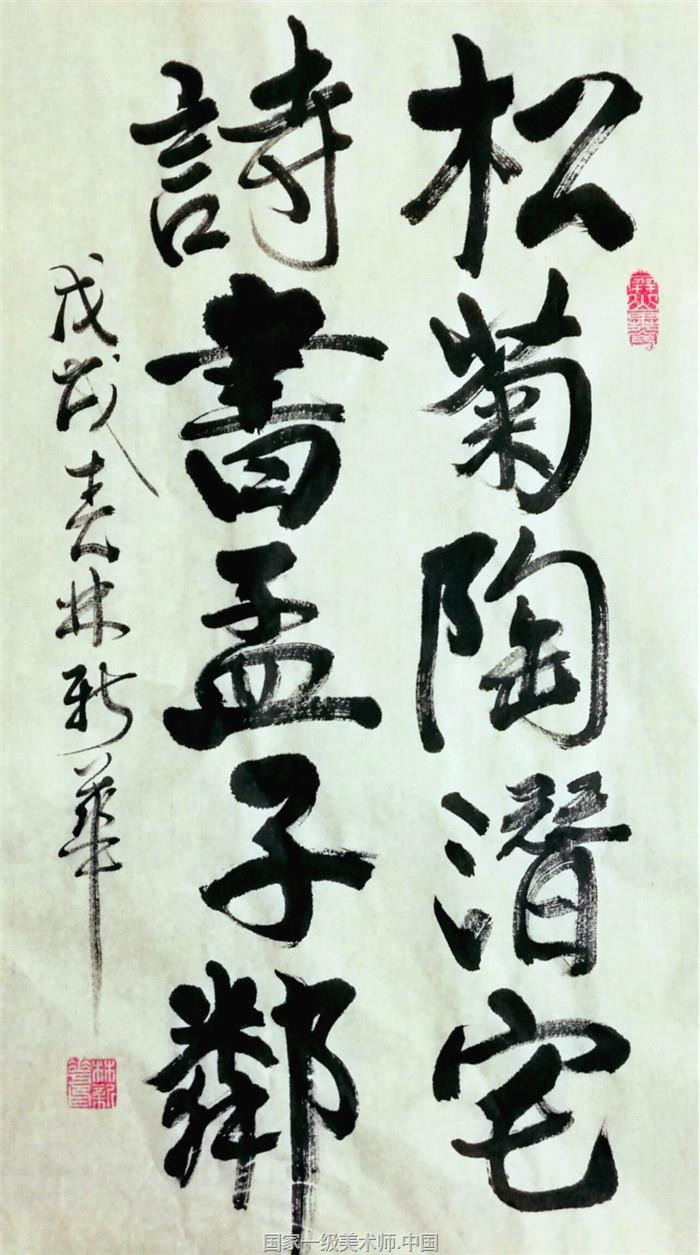 松菊陶潛宅
詩書孟子鄰
戊戌春林新華
林新華印
国家一级美术师.中国